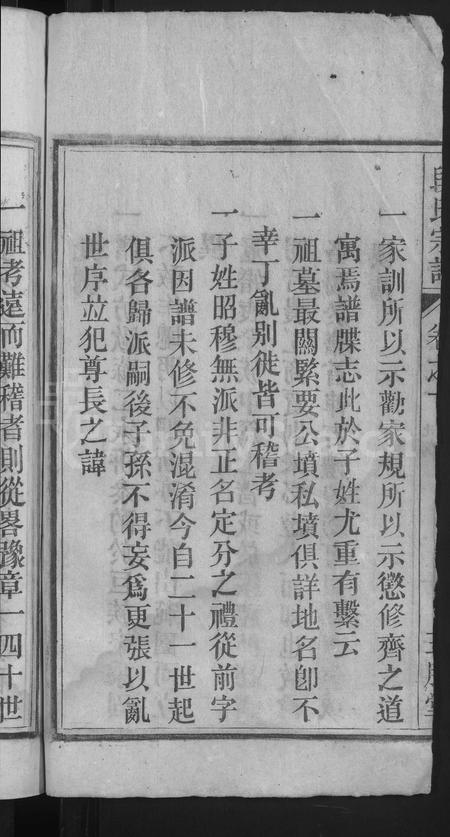 一家訓所以示勸家規所以示懲修齊之道
寓焉譜牒志此於子姓尤重有繫云
一祖墓最關緊要公墳私墳俱詳地名卽不
幸丁亂别徙皆可稽考
一子姓昭穆無派非正名定分之禮從前字
派因譜未修不免混淆今自二十一世起
俱各歸派嗣後子孫不得妄爲更張以亂
世序竝犯尊長之諱
一祖考遠而難稽者則從畧豫章一四十世